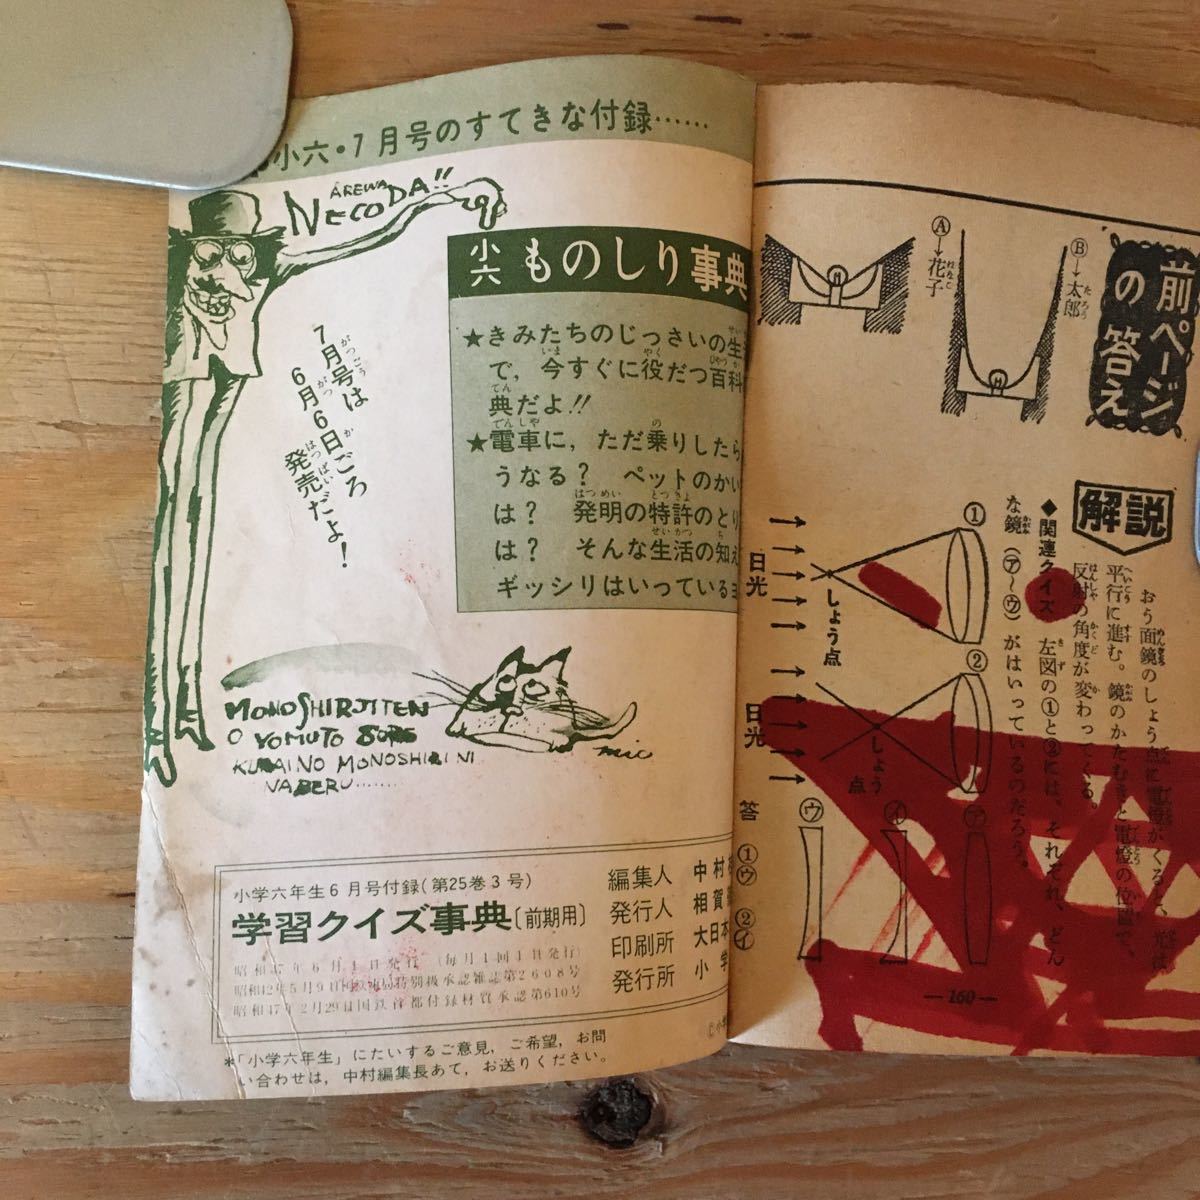 小六・7月号のすてきな付録……
AREWA
NECODA!!
小六 ものしり事典
★きみたちのじっさいの生
で，今すぐに役だつ百科
典だよ!!
★電車に，ただ乗りしたら
うなる？ ペットのかい
は？ 発明の特許のとり
は？ そんな生活の知え
ギッシリはいっているヨ
7月号は
6月6日ごろ
発売だよ！
MONOSHIRJITEN
O YOMUTO
KURAINO MONOSHIRINI
NABERU……
mic
小学六年生6月号付録（第25巻3号）
学習クイズ事典〔前期用〕
昭和47年6月1日発行 （毎月1回1日発行）
昭和47年2月29日国鉄首都付録材質承認第610号
編集人 中村
発行人 相賀
印刷所 大日本
発行所 小学
*「小学六年生」にたいするご意見，ご希望，お問
い合わせは，中村編集長あて，お送りください。
前ページの答え
Ⓐ→花子
Ⓑ→太郎
解説
おう面鏡のしょう点に電燈がくると、光は
平行に進む。鏡のかたむきと電燈の位置で、
反射の角度が変わってくる。
◆関連クイズ 左図の①と②には、それぞれ、どん
な鏡（㋐〜㋒）がはいっているのだろう。
①
日光
しょう点
②
日光
しょう点
㋒ ㋑ ㋐
答 ①㋒ ②㋑
—160—